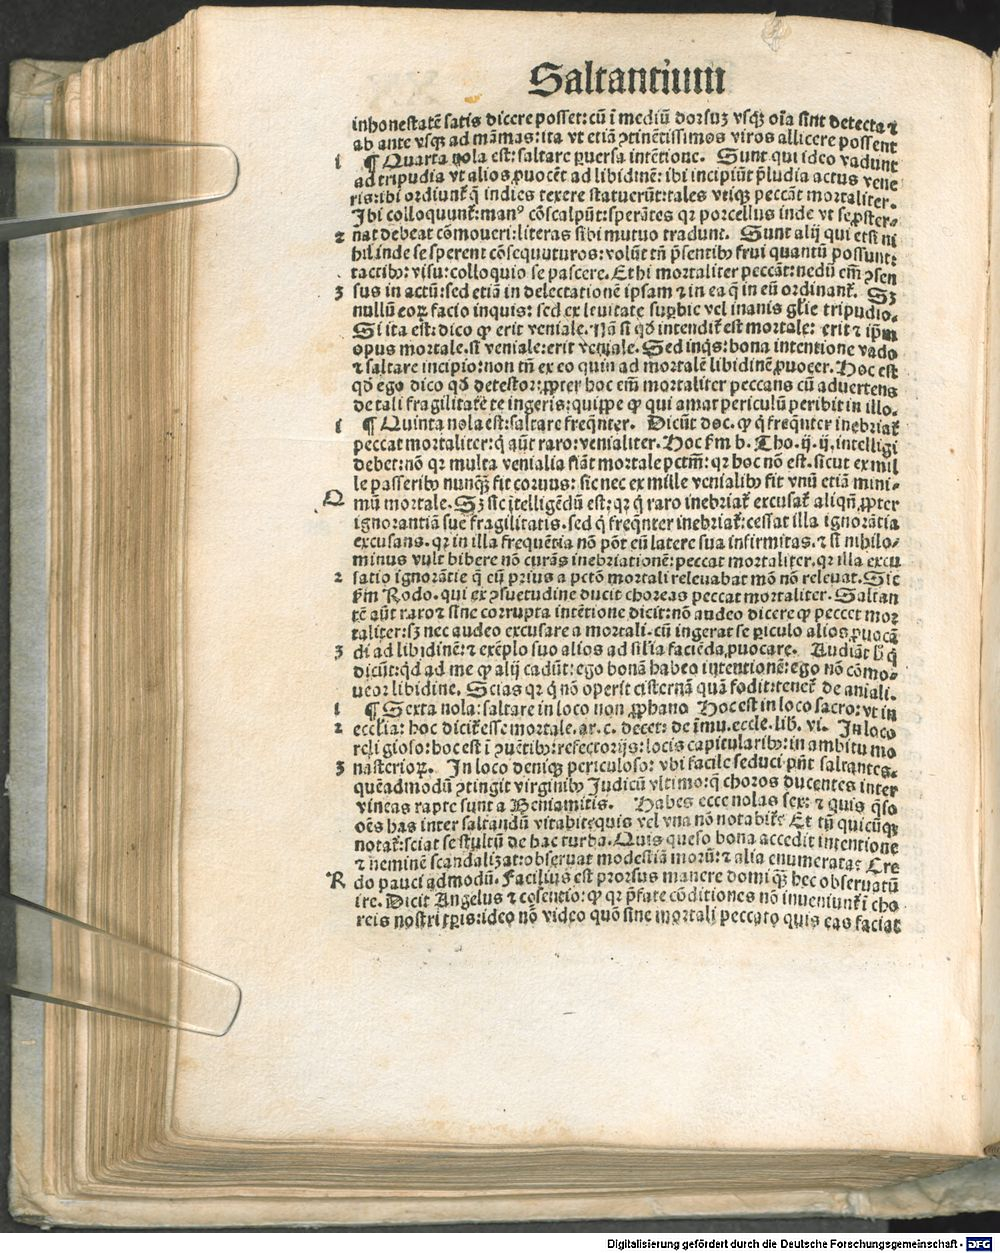 Saltantium
inhonestatẽ satis dicere posset: cũ ĩ mediũ dorsuʒ vsqꝫ oĩa sint detecta ⁊
ab ante vsqꝫ ad mãmas: ita vt etiã ꝯtinẽtissimos viros allicere possent
1 ¶ Quarta nola est: saltare ꝑuersa intẽtione. Sunt qui ideo vadunt
ad tripudia vt alios ꝓuocẽt ad libidinẽ: ibi incipiũt p̃ludia actus vene
ris: ibi ordiunt᷑ q̃ indies texere statuerũt: tales vtiqꝫ peccãt mortaliter.
Ibi colloquunt᷑: manꝰ cõscalpũt: sperãtes qꝛ porcellus inde vt se ꝓster⸗
2 nat debeat cõmoueri: literas sibi mutuo tradunt. Sunt alij qui etsi ni
hil inde se sperent cõsequuturos: volũt tñ p̃sentibꝫ frui quantũ possunt:
tactibꝫ: visu: colloquio se pascere. Et hi mortaliter peccãt: nedũ em̃ ꝯsen
3 sus in actũ: sed etiã in delectationẽ ipsam ⁊ in ea q̃ in eũ ordinant᷑. Sʒ
nullũ eoꝝ facio inquis: sed ex leuitate suꝑbie vel inanis gl̃ie tripudio.
Si ita est: dico ꝙ erit veniale. Nã si qď intendit᷑ est mortale: erit ⁊ ip̃m
opus mortale. si veniale: erit veniale. Sed inq̃s: bona intentione vado
⁊ saltare incipio: non tñ ex eo quin ad mortalẽ libidinẽ ꝓuocer. Hoc est
qď ego dico qď detestor: ꝓpter hoc em̃ mortaliter peccans cũ aduertens
de tali fragilitate te ingeris: quippe ꝙ qui amat periculũ peribit in illo.
1 ¶ Quinta nola est: saltare freq̃nter. Dicũt doc. ꝙ q̃ freq̃nter inebriat᷑
peccat mortaliter: q̃ aũt raro: venialiter. Hoc ẜm b. Tho. ij. ij. intelligi
debet: nõ qꝛ multa venialia fiãt mortale pctm̃: qꝛ hoc nõ est. sicut ex mil
le passeribꝫ nunq̃ʒ fit coruus: sic nec ex mille venialibꝫ fit vnũ etiã mini⸗
Q mũ mortale. Sʒ sic ĩtelligẽdũ est: qꝛ q̃ raro inebriat᷑ excusat᷑ aliqñ ꝓpter
ignorantiã sue fragilitatis. sed q̃ freq̃nter inebriat᷑: cessat illa ignorãtia
excusans. qꝛ in illa frequẽtia nõ põt eũ latere sua infirmitas. ⁊ si nihilo⸗
minus vult bibere nõ curãs inebriationẽ: peccat mortaliter. qꝛ illa excu
2 satio ignorãtie q̃ eũ prius a pctõ mortali releuabat mõ nõ releuat. Sic
ẜm Rodo. qui ex ꝯsuetudine ducit choreas peccat mortaliter. Saltan
tẽ aũt raro ⁊ sine corrupta intẽtione dicit: nõ audeo dicere ꝙ peccet mor
taliter: sʒ nec audeo excusare a mortali. cũ ingerat se ꝑiculo alios ꝓuocã
3 di ad libidinẽ: ⁊ exẽplo suo alios ad sil̃ia faciẽda ꝓuocare. Audiãt h̃ q̃
dicũt: qď ad me ꝙ alij cadũt: ego bonã habeo intentionẽ: ego nõ cõmo⸗
ueor libidine. Scias qꝛ q̃ nõ operit cisternã quã fodit: tenet᷑ de aniali.
1 ¶ Sexta nola: saltare in loco non ꝓphano Hoc est in loco sacro: vt in
2 ecclĩa: hoc dicit᷑ esse mortale. ar. c. decet: de ĩmu. eccle. lib. vi. In loco
religioso: hoc est ĩ ꝯuẽtibꝫ: refectorijs: locis capitularibꝫ: in ambitu mo
3 nasterioꝝ. In loco deniqꝫ periculoso: vbi facile seduci pñt saltantes.
quẽadmodũ ꝯtingit virginibꝫ Judicũ vltimo: q̃ choros ducentes inter
vineas rapte sunt a Beniamitis. Habes ecce nolas sex: ⁊ quis q̃so
oẽs has inter saltandũ vitabit: quis vel vna nõ notabit᷑ Et tñ quicũqꝫ
notat᷑: sciat se stultũ de hac turba. Quis queso bona accedit intentione
⁊ neminẽ scandalizat: obseruat modestiã morũ: ⁊ alia enumerata: Cre
R do pauci admodũ. Facilius est prorsus manere domi q̃ʒ hec obseruatũ
ire. Dicit Angelus ⁊ cõsentio: ꝙ qꝛ p̃fate cõditiones nõ inueniunt᷑ ĩ cho
reis nostri tꝑis: ideo nõ video quõ sine mortali peccato quis eas faciat
Digitalisierung gefördert durch die Deutsche Forschungsgemeinschaft - DFG